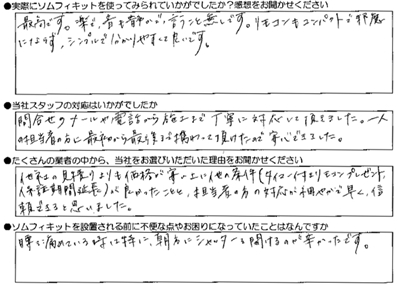 ●実際にソムフィキットを使ってみられていかがでしたか？感想をお聞かせください
最高です。楽で、音も静かで、言うこと無しです。リモコンもコンパクトで邪魔
にならず、シンプルで分かりやすくて良いです。
●当社スタッフの対応はいかがでしたか
問合せのメールや電話から施工まで丁寧に対応して頂きました。一人
の担当者の方に最初から最後まで携わって頂けたので安心できました。
●たくさんの業者の中から、当社をお選びいただいた理由をお聞かせください
他社の見積りよりも価格が安い上に他の条件(タイコートすよリモコンプレゼント、
保証期間延長)が良かったことと、担当者の方の対応が穏やかで早く、信
頼できると思いました。
●ソムフィキットを設置される前に不便な点やお困りになっていたことはなんですか
腰を痛めている時は特に、朝方にシャッターを開けるのが辛かったです。